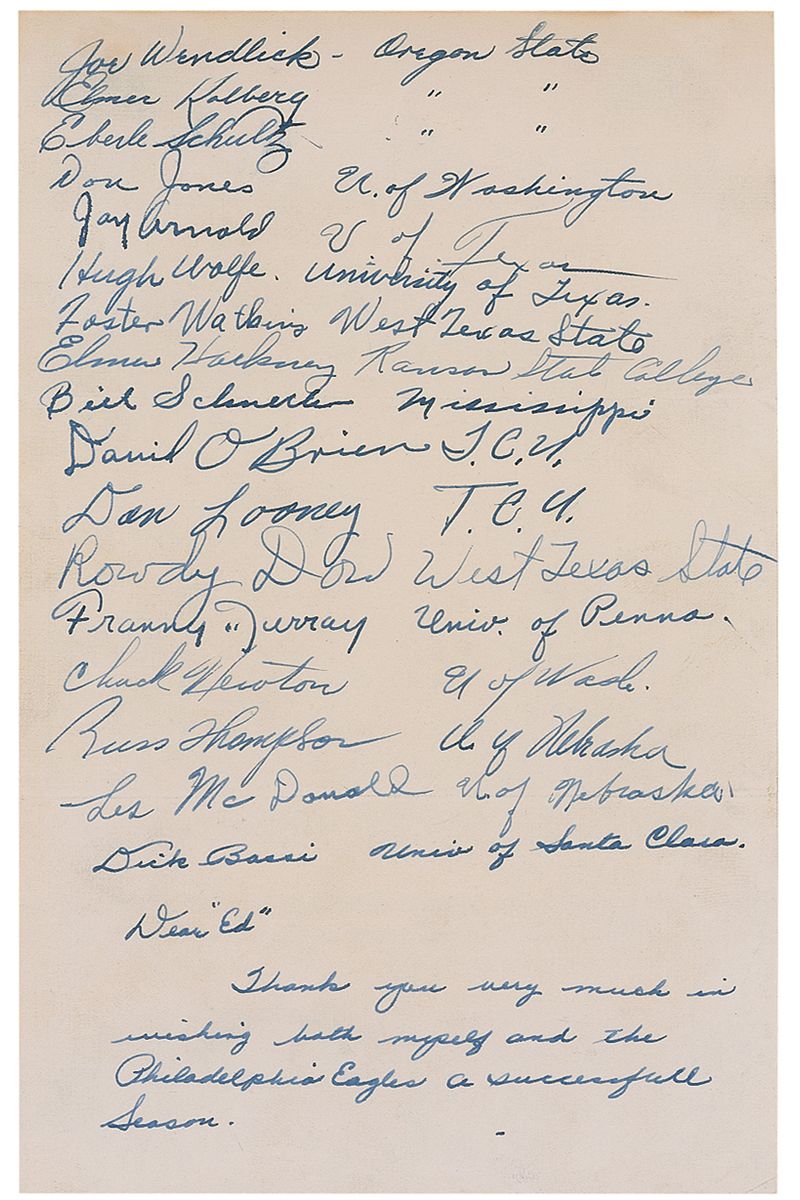 Joe Wendlick - Oregon State
Elmer Kolberg " "
Eberle Schultz " "
Don Jones U. of Washington
Jay Arnold U of Texas
Hugh Wolfe. University of Texas.
Foster Watkins West Texas State
Elmer Hackney Kansas State College
Bill Schneller Mississippi
David O'Brien T.C.U.
Don Looney T.C.U.
Rowdy Dow West Texas State
Franny "Murray Univ. of Penna.
Chuck Newton U of Wash.
Russ Thompson U. of Nebraska
Les McDonald U. of Nebraska
Dick Bassi Univ of Santa Clara.
Dear "Ed"
Thank you very much in
wishing both myself and the
Philadelphia Eagles a successfull
Season.